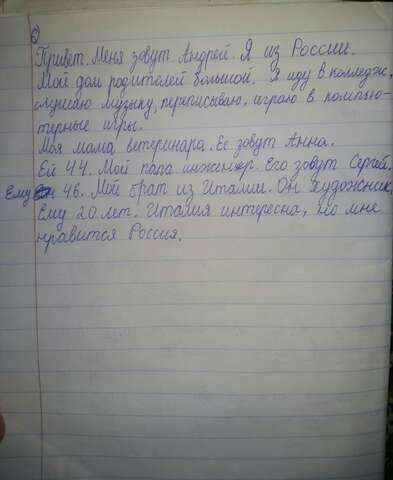 б)
Привет. Меня зовут Андрей. Я из России.
Мой дом родителей большой. Я иду в колледж,
слушаю музыку, переписываю, играю в компью-
терные игры.
Моя мама ветеринара. Её зовут Анна.
Ей 44. Мой папа инженер. Его зовут Сергей.
Ему 46. Мой брат из Италии. Он художник.
Ему 20 лет. Италия интересна, но мне
нравится Россия.